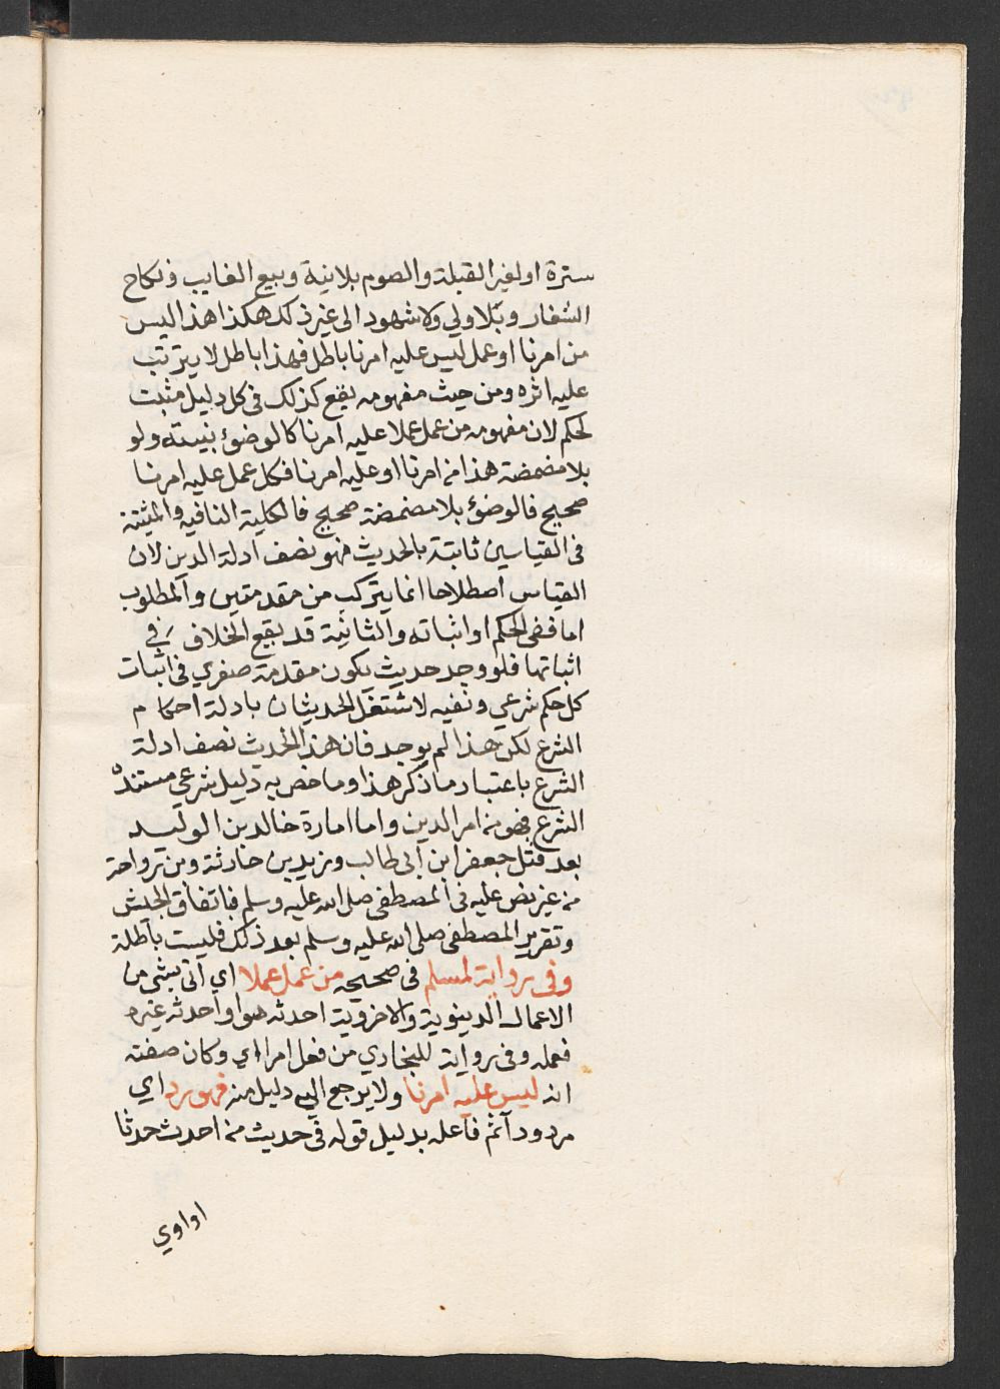 سترة او لغير القبلة والصوم بلا نية وبيع الغايب ونكاح
الشغار وبلا ولي ولا شهود الى غير ذلك هكذا هذا ليس
من امرنا او عمل ليس عليه امرنا باطل فهذا باطل لا يترتب
عليه اثره ومن حيث مفهومه يقع كذلك في كل دليل مثبت
لحكم لان مفهومه من عمل عملا عليه امرنا كالوضوء بنيته ولو
بلا مضمضة هذا من امرنا او عليه امرنا فكل عمل عليه امرنا
صحيح فالوضوء بلا مضمضة صحيح فالكلية النافيه والمثبتة
في القياسين ثابتة بالحديث فهو نصف ادلة الدين لان
القياس اصطلاحا انما يتركب من مقدمتين والمطلوب
اما نفى الحكم او اثباته والثانية قد يقع الخلاف في
اثباتها فلو وجد حديث يكون مقدمة صغري في اثبات
كل حكم شرعي ونفيه لاشتغل الحديثان بادلة احكام
الشرع لكن هذا لم يوجد فان هذا الحديث نصف ادلة
الشرع باعتبار ما ذكر هذا وما خص به دليل شرعي مستنده
الشرع فهو من امر الدين واما امارة خالد بن الوليد
بعد قتل جعفر ابن ابي طالب وزيد بن حارثة وبن رواحة
من غير نص عليه في المصطفى صلى الله عليه وسلم فاتفاق الجيش
وتقرير المصطفى صلى الله عليه وسلم بعد ذلك فليست باطلة
وفي رواية لمسلم في صحيحه من عمل عملا اي اتى بشي من
الاعمال الدينوية والاخروية احدثه هو او احدثه غيره
فعمله وفي رواية للبخاري من فعل امرا اي وكان صفته
انه ليس عليه امرنا ولا يرجع الي دليل منه فهو رد اي
مردود آثم فاعله بدليل قوله في حديث من احدث حدثا
او اوي